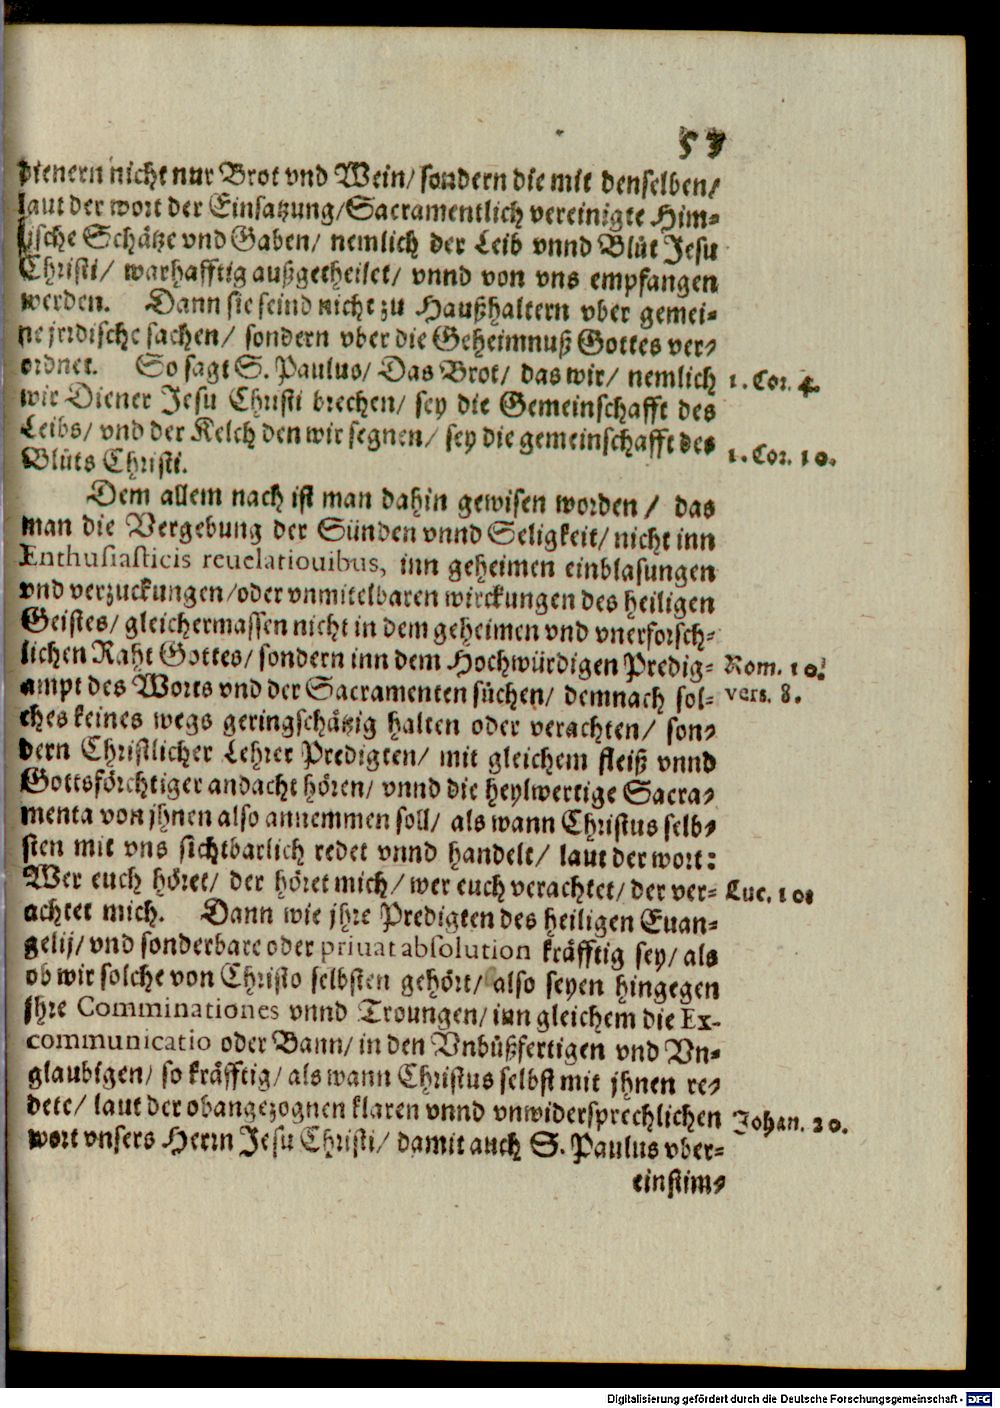 53
dienern nicht nur Brot vnd Wein/ sondern die mit denselben/
laut der wort der Einsatzung/ Sacramentlich vereinigte Him⸗
lische Schätze vnd Gaben/ nemlich der Leib vnnd Blůt Jesu
Christi/ warhafftig außgetheilet/ vnnd von vns empfangen
werden. Dann sie seind nicht zu Haußhaltern vber gemei⸗
ne jrrdische sachen/ sondern vber die Geheimnuß Gottes ver⸗
ordnet. So sagt S. Paulus/ Das Brot/ das wir/ nemlich
1. Cor. 4.
wir Diener Jesu Christi brechen/ sey die Gemeinschafft des
Leibs/ vnd der Kelch den wir segnen/ sey die gemeinschafft des
1. Cor. 10.
Blůts Christi.
Dem allem nach ist man dahin gewisen worden/ das
man die Vergebung der Sünden vnnd Seligkeit/ nicht inn
Enthusiasticis reuelatiouibus, inn geheimen einblasungen
vnd verzuckungen/ oder vnmitelbaren wirckungen des heiligen
Geistes/ gleichermassen nicht in dem geheimen vnd vnerforsch⸗
lichen Raht Gottes/ sondern inn dem Hochwürdigen Predig⸗
Rom. 10.
ampt des Worts vnd der Sacramenten sůchen/ demnach sol⸗
vers. 8.
ches keines wegs geringschätzig halten oder verachten/ son⸗
dern Christlicher Lehrer Predigten/ mit gleichem fleiß vnnd
Gottsförchtiger andacht hören/ vnnd die heylwertige Sacra⸗
menta von jhnen also annemmen soll/ als wann Christus selb⸗
sten mit vns sichtbarlich redet vnnd handelt/ laut der wort:
Wer euch höret/ der höret mich/ wer euch verachtet/ der ver⸗
Luc. 10.
achtet mich. Dann wie jhre Predigten des heiligen Euan⸗
gelij/ vnd sonderbare oder priuat absolution kräfftig sey/ als
ob wir solche von Christo selbsten gehört/ also seyen hingegen
jhre Comminationes vnnd Troungen/ inn gleichem die Ex-
communicatio oder Bann/ in den Vnbůßfertigen vnd Vn⸗
glaubigen/ so kräfftig/ als wann Christus selbst mit jhnen re⸗
dete/ laut der obangezognen klaren vnnd vnwidersprechlichen
Johan. 20.
wort vnsers Herrn Jesu Christi/ damit auch S. Paulus vber⸗
einstim⸗
Digitalisierung gefördert durch die Deutsche Forschungsgemeinschaft - DFG